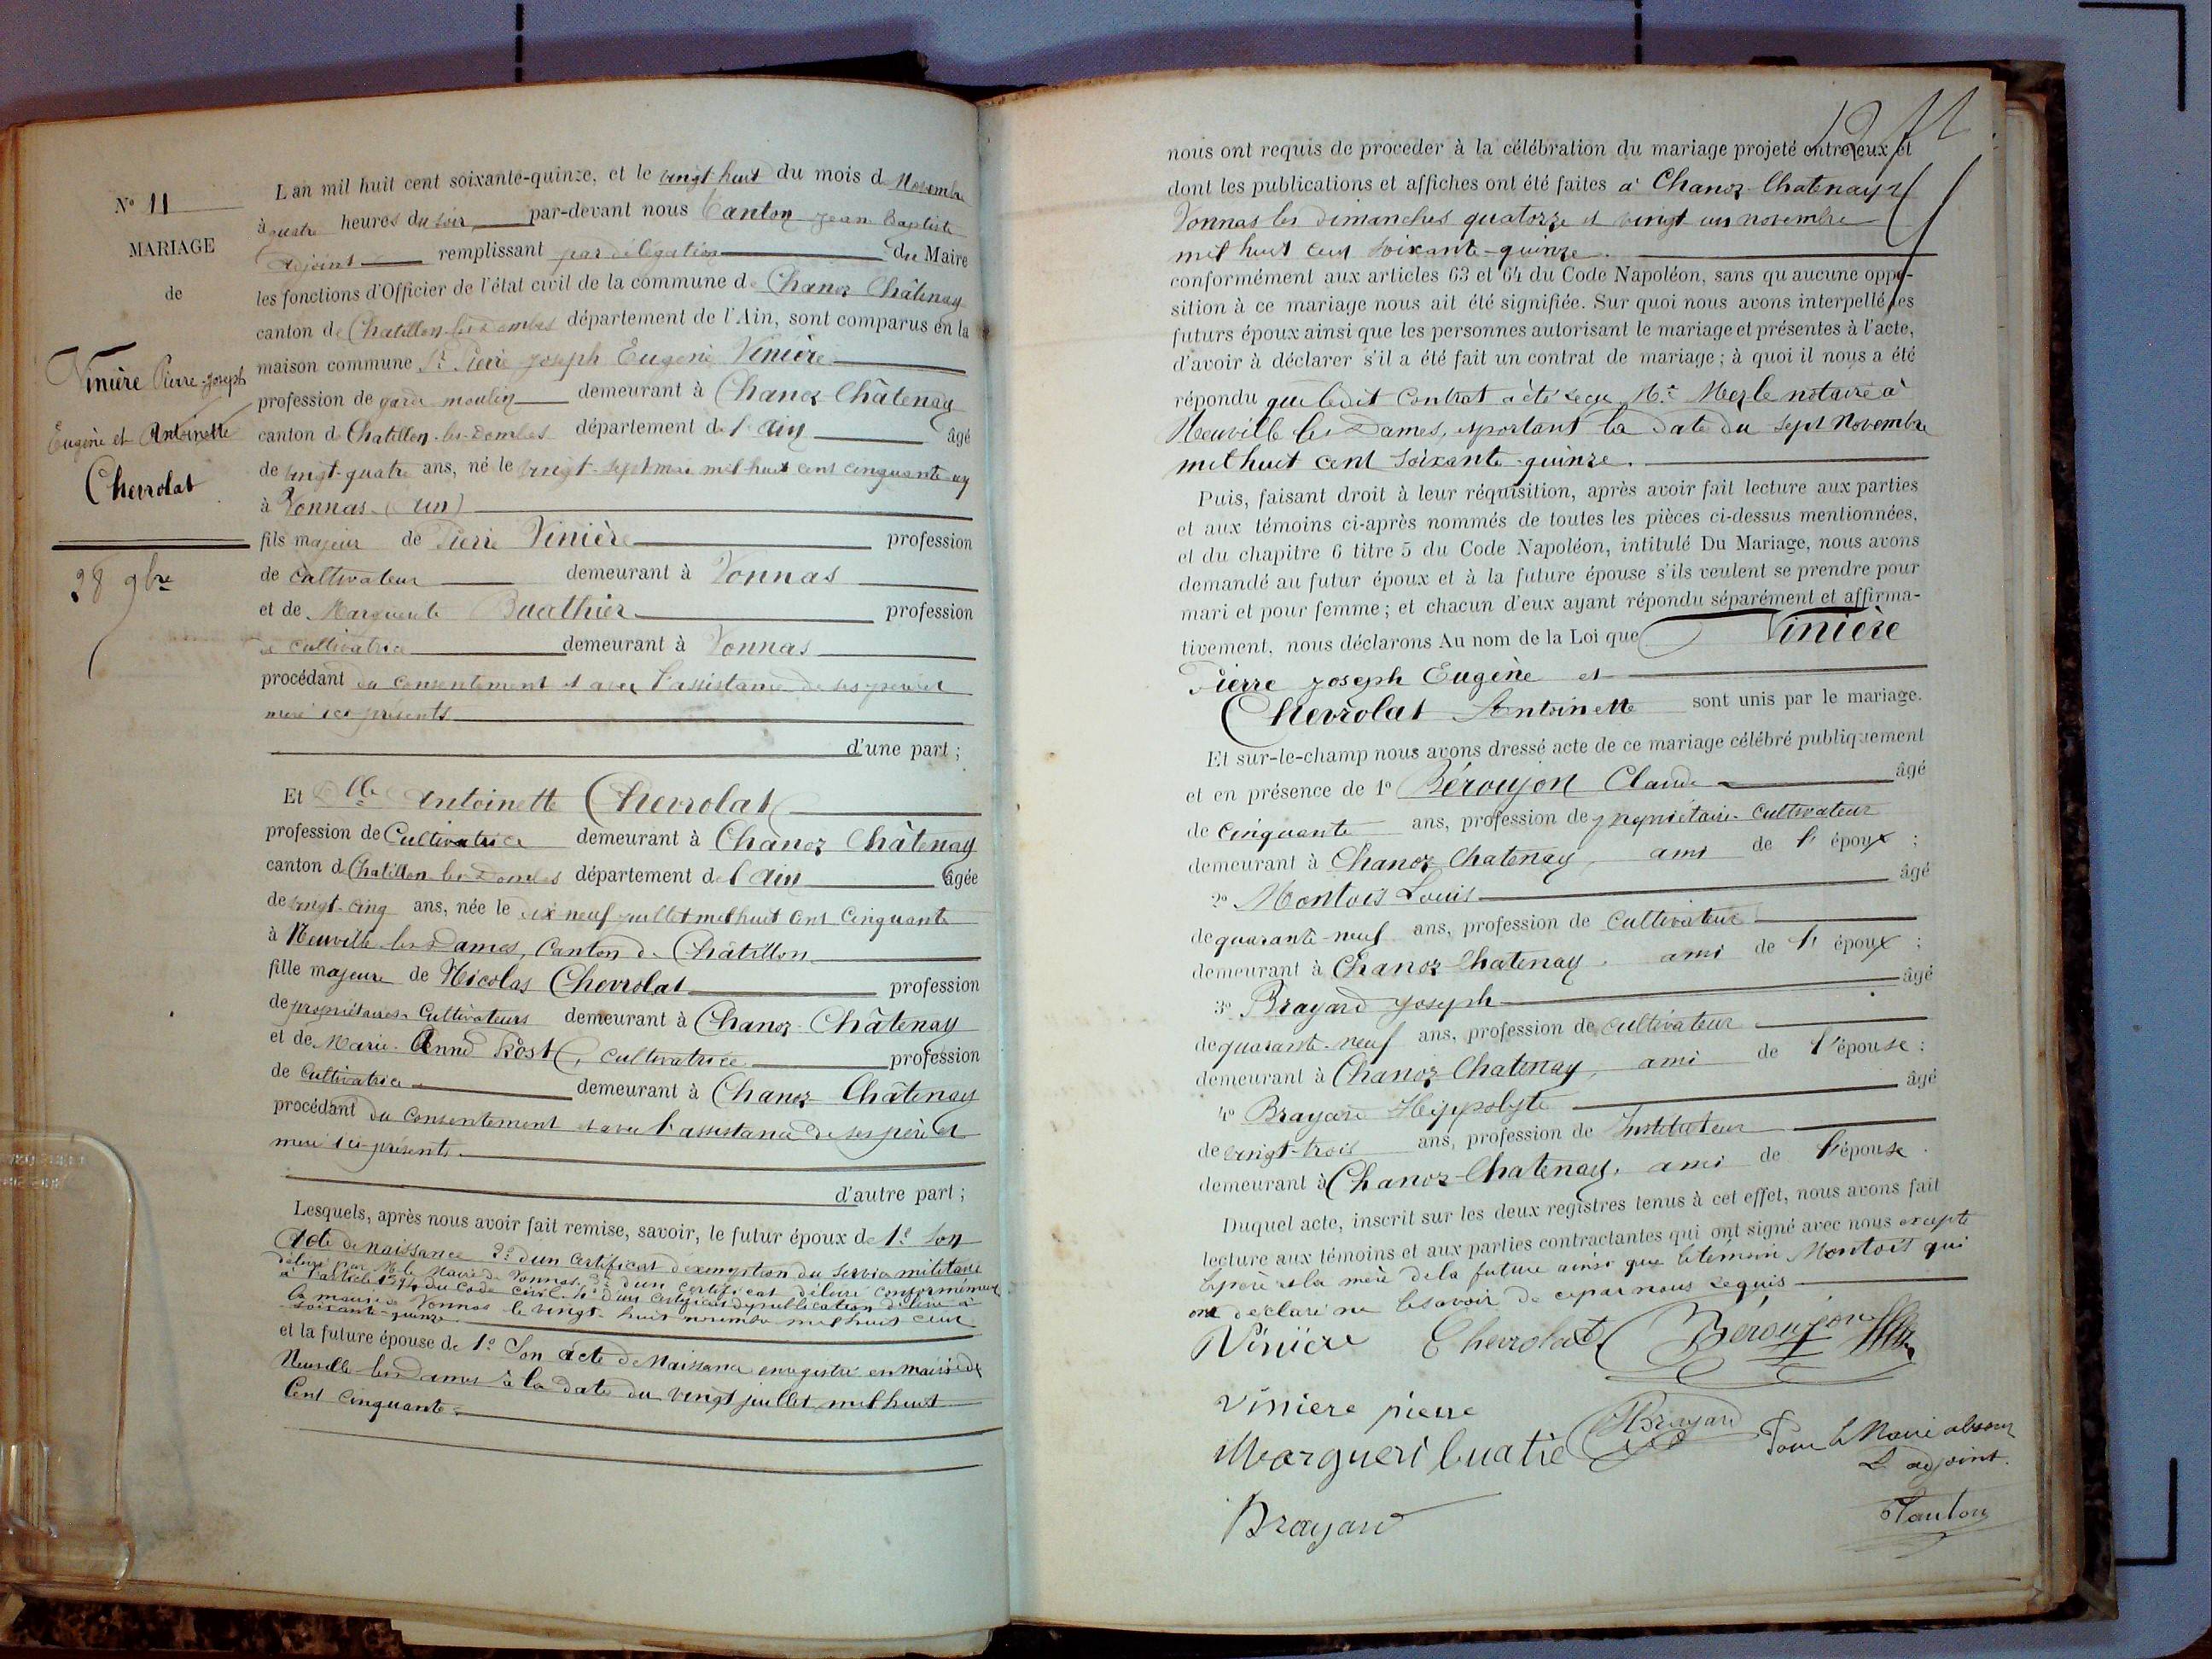 N° 11
MARIAGE
de
Vinière Pierre-Joseph
Eugène et Antoinette
Chevrolat
28 9bre
L'an mil huit cent soixante-quinze, et le vingt huit du mois de Novembre
à quatre heures du soir, par-devant nous Tanton Jean Baptiste
adjoint remplissant par délégation du Maire
les fonctions d'Officier de l'état civil de la commune de Chanoz Châtenay
canton de Chatillon-les-Dombes département de l'Ain, sont comparus en la
maison commune Sr Pierre Joseph Eugène Vinière
profession de garde moulin demeurant à Chanoz Châtenay
canton de Chatillon-les-Dombes département de l'Ain âgé
de vingt-quatre ans, né le vingt-sept mai mil huit cent cinquante-un
à Vonnas (Ain)
fils majeur de Pierre Vinière profession
de cultivateur demeurant à Vonnas
et de Marguerite Buathier profession
de cultivatrice demeurant à Vonnas
procédant du consentement et avec l'assistance de ses père et
mère ici présents
d'une part ;
Et Dlle Antoinette Chevrolat
profession de Cultivatrice demeurant à Chanoz Châtenay
canton de Chatillon-les-Dombes département de l'Ain âgée
de vingt-cinq ans, née le dix neuf juillet mil huit cent cinquante
à Neuville-les-Dames, Canton de Châtillon
fille majeure de Nicolas Chevrolat profession
de propriétaires-Cultivateurs demeurant à Chanoz-Châtenay
et de Marie-Anne Rost, cultivatrice profession
de Cultivatrice demeurant à Chanoz-Châtenay
procédant du consentement et avec l'assistance de ses père et
mère ici-présents.
d'autre part ;
Lesquels, après nous avoir fait remise, savoir, le futur époux de 1° Son
Acte de Naissance 2° d'un Certificat d'exemption du Service militaire
délivré par M. le Maire de Vonnas, 3° d'un certificat délivré conformément
à l'article 1394 du Code Civil. 4° d'un certificat de publication délivré à
la mairie de Vonnas le vingt-huit novembre mil huit cent
soixante-quinze.
et la future épouse de 1° Son acte de Naissance enregistré en mairie de
Neuville les Dames à la date du vingt juillet mil huit
Cent cinquante.
nous ont requis de procéder à la célébration du mariage projeté entre eux et
dont les publications et affiches ont été faites à Chanoz-Chatenay et
Vonnas les dimanches quatorze et vingt un novembre
mil huit cent soixante-quinze.
conformément aux articles 63 et 64 du Code Napoléon, sans qu'aucune oppo-
sition à ce mariage nous ait été signifiée. Sur quoi nous avons interpellé les
futurs époux ainsi que les personnes autorisant le mariage et présentes à l'acte,
d'avoir à déclarer s'il a été fait un contrat de mariage ; à quoi il nous a été
répondu que ledit Contrat a été reçu Me Merle notaire à
Neuville les Dames, et portant la date du sept Novembre
mil huit cent soixante-quinze.
Puis, faisant droit à leur réquisition, après avoir fait lecture aux parties
et aux témoins ci-après nommés de toutes les pièces ci-dessus mentionnées,
et du chapitre 6 titre 5 du Code Napoléon, intitulé Du Mariage, nous avons
demandé au futur époux et à la future épouse s'ils veulent se prendre pour
mari et pour femme ; et chacun d'eux ayant répondu séparément et affirma-
tivement, nous déclarons Au nom de la Loi que Vinière
Pierre Joseph Eugène et
Chevrolat Antoinette sont unis par le mariage.
Et sur-le-champ nous avons dressé acte de ce mariage célébré publiquement
et en présence de 1° Béroujon Claude âgé
de Cinquante ans, profession de propriétaire-cultivateur
demeurant à Chanoz-Chatenay, ami de l' époux ;
2° Montois Louis âgé
de quarante-neuf ans, profession de Cultivateur
demeurant à Chanoz-Chatenay. ami de l' époux ;
3° Brayard Joseph âgé
de quarante-neuf ans, profession de cultivateur
demeurant à Chanoz-Chatenay, ami de l'épouse ;
4° Brayard Hippolyte âgé
de vingt-trois ans, profession de Instituteur
demeurant à Chanoz-Chatenay, ami de l'épouse.
Duquel acte, inscrit sur les deux registres tenus à cet effet, nous avons fait
lecture aux témoins et aux parties contractantes qui ont signé avec nous excepté
le père et la mère de la future ainsi que le témoin Montois qui
ont déclaré ne le savoir de ce par nous requis
Vinière Chevrolat Béroujon
Viniere pierre
Margueri buatie HBrayard Pour le Maire absent
L'adjoint.
Brayard Tanton